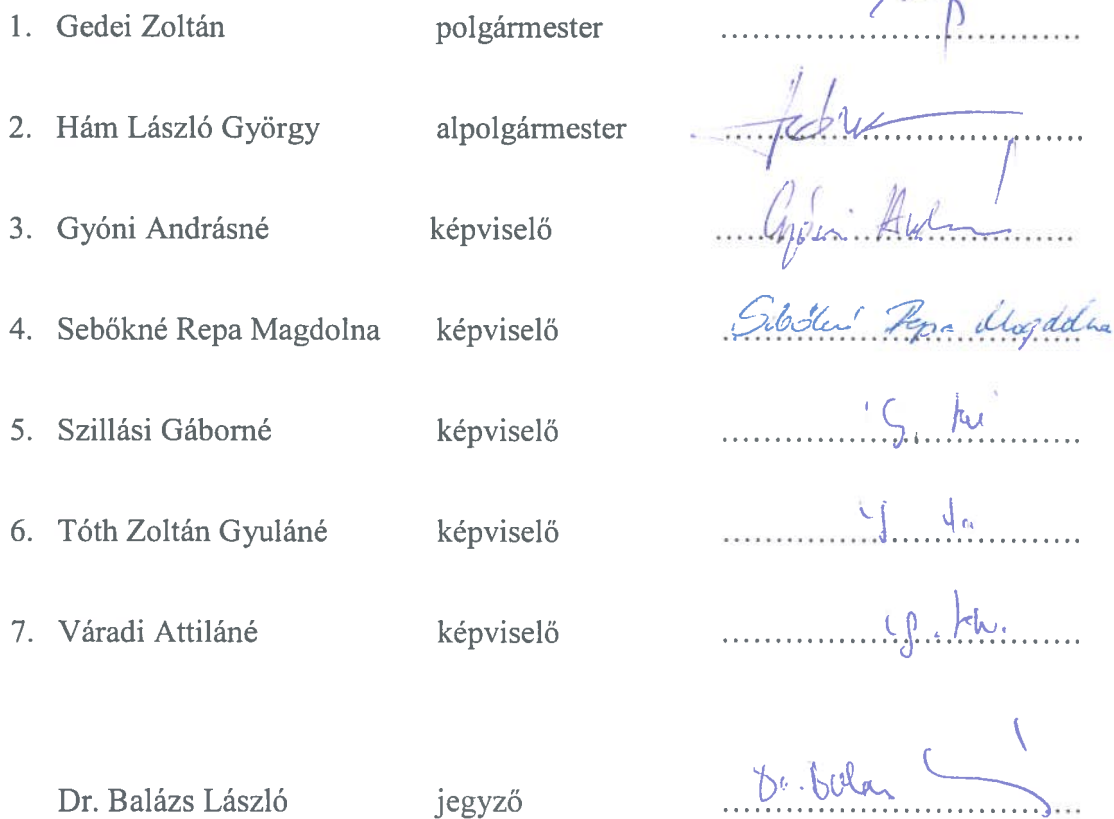 1. Gedei Zoltán polgármester ..............................
2. Hám László György alpolgármester ..............................
3. Gyóni Andrásné képviselő ..............................
4. Sebőkné Repa Magdolna képviselő Sebőkné Repa Magdolna
5. Szillási Gáborné képviselő ..............................
6. Tóth Zoltán Gyuláné képviselő ..............................
7. Váradi Attiláné képviselő ..............................
Dr. Balázs László jegyző ..............................